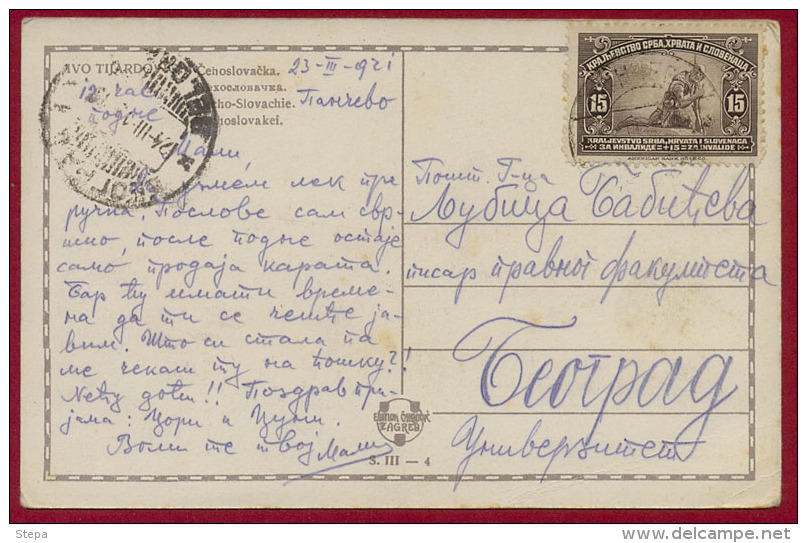 IVO TIJARDO
Čehoslovačka.
23-III-921
ехословачка.
Панчево
cho-Slovachie.
choslovakei.
12 час
подне
Мали,
лек пре
ручка. Послове сам свр-
шио, после подне остаје
само продаја карата.
Бар ћу имати време-
на да ти се чешће ја-
вим. Што си стала па
ме чекаш ту на ћошку?!
Нећу доћи!! Поздрав при-
јама: Цори и
Воли те твој Мали
КРАЉЕВСТВО СРБА, ХРВАТА И СЛОВЕНАЦА
15 15
KRALJEVSTVO SRBA, HRVATA I SLOVENACA
ЗА ИНВАЛИДЕ +15= ZA INVALIDE
AMERICAN BANK NOTE CO.
Пошт. Г-ца
Љубица Бабићева
писар правног факултета
Београд
Универзитет
ZAGREB
S. III — 4
Stepa
delcampe.net